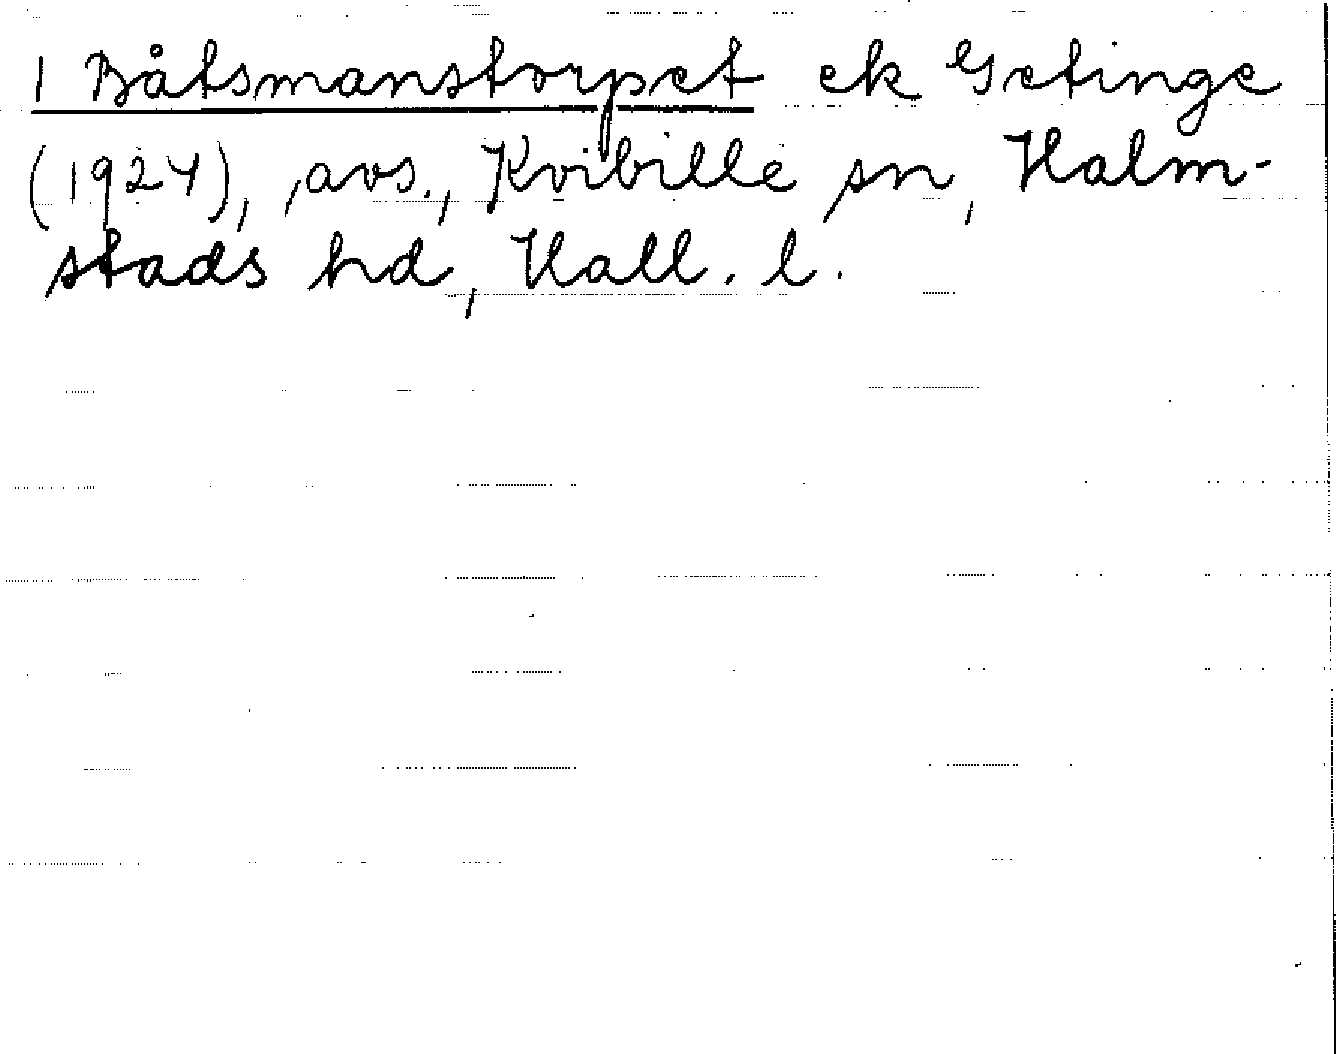 1 Båtsmanstorpet ek Getinge
(1924), avs., Kvibille sn, Halm-
stads hd, Hall. l.